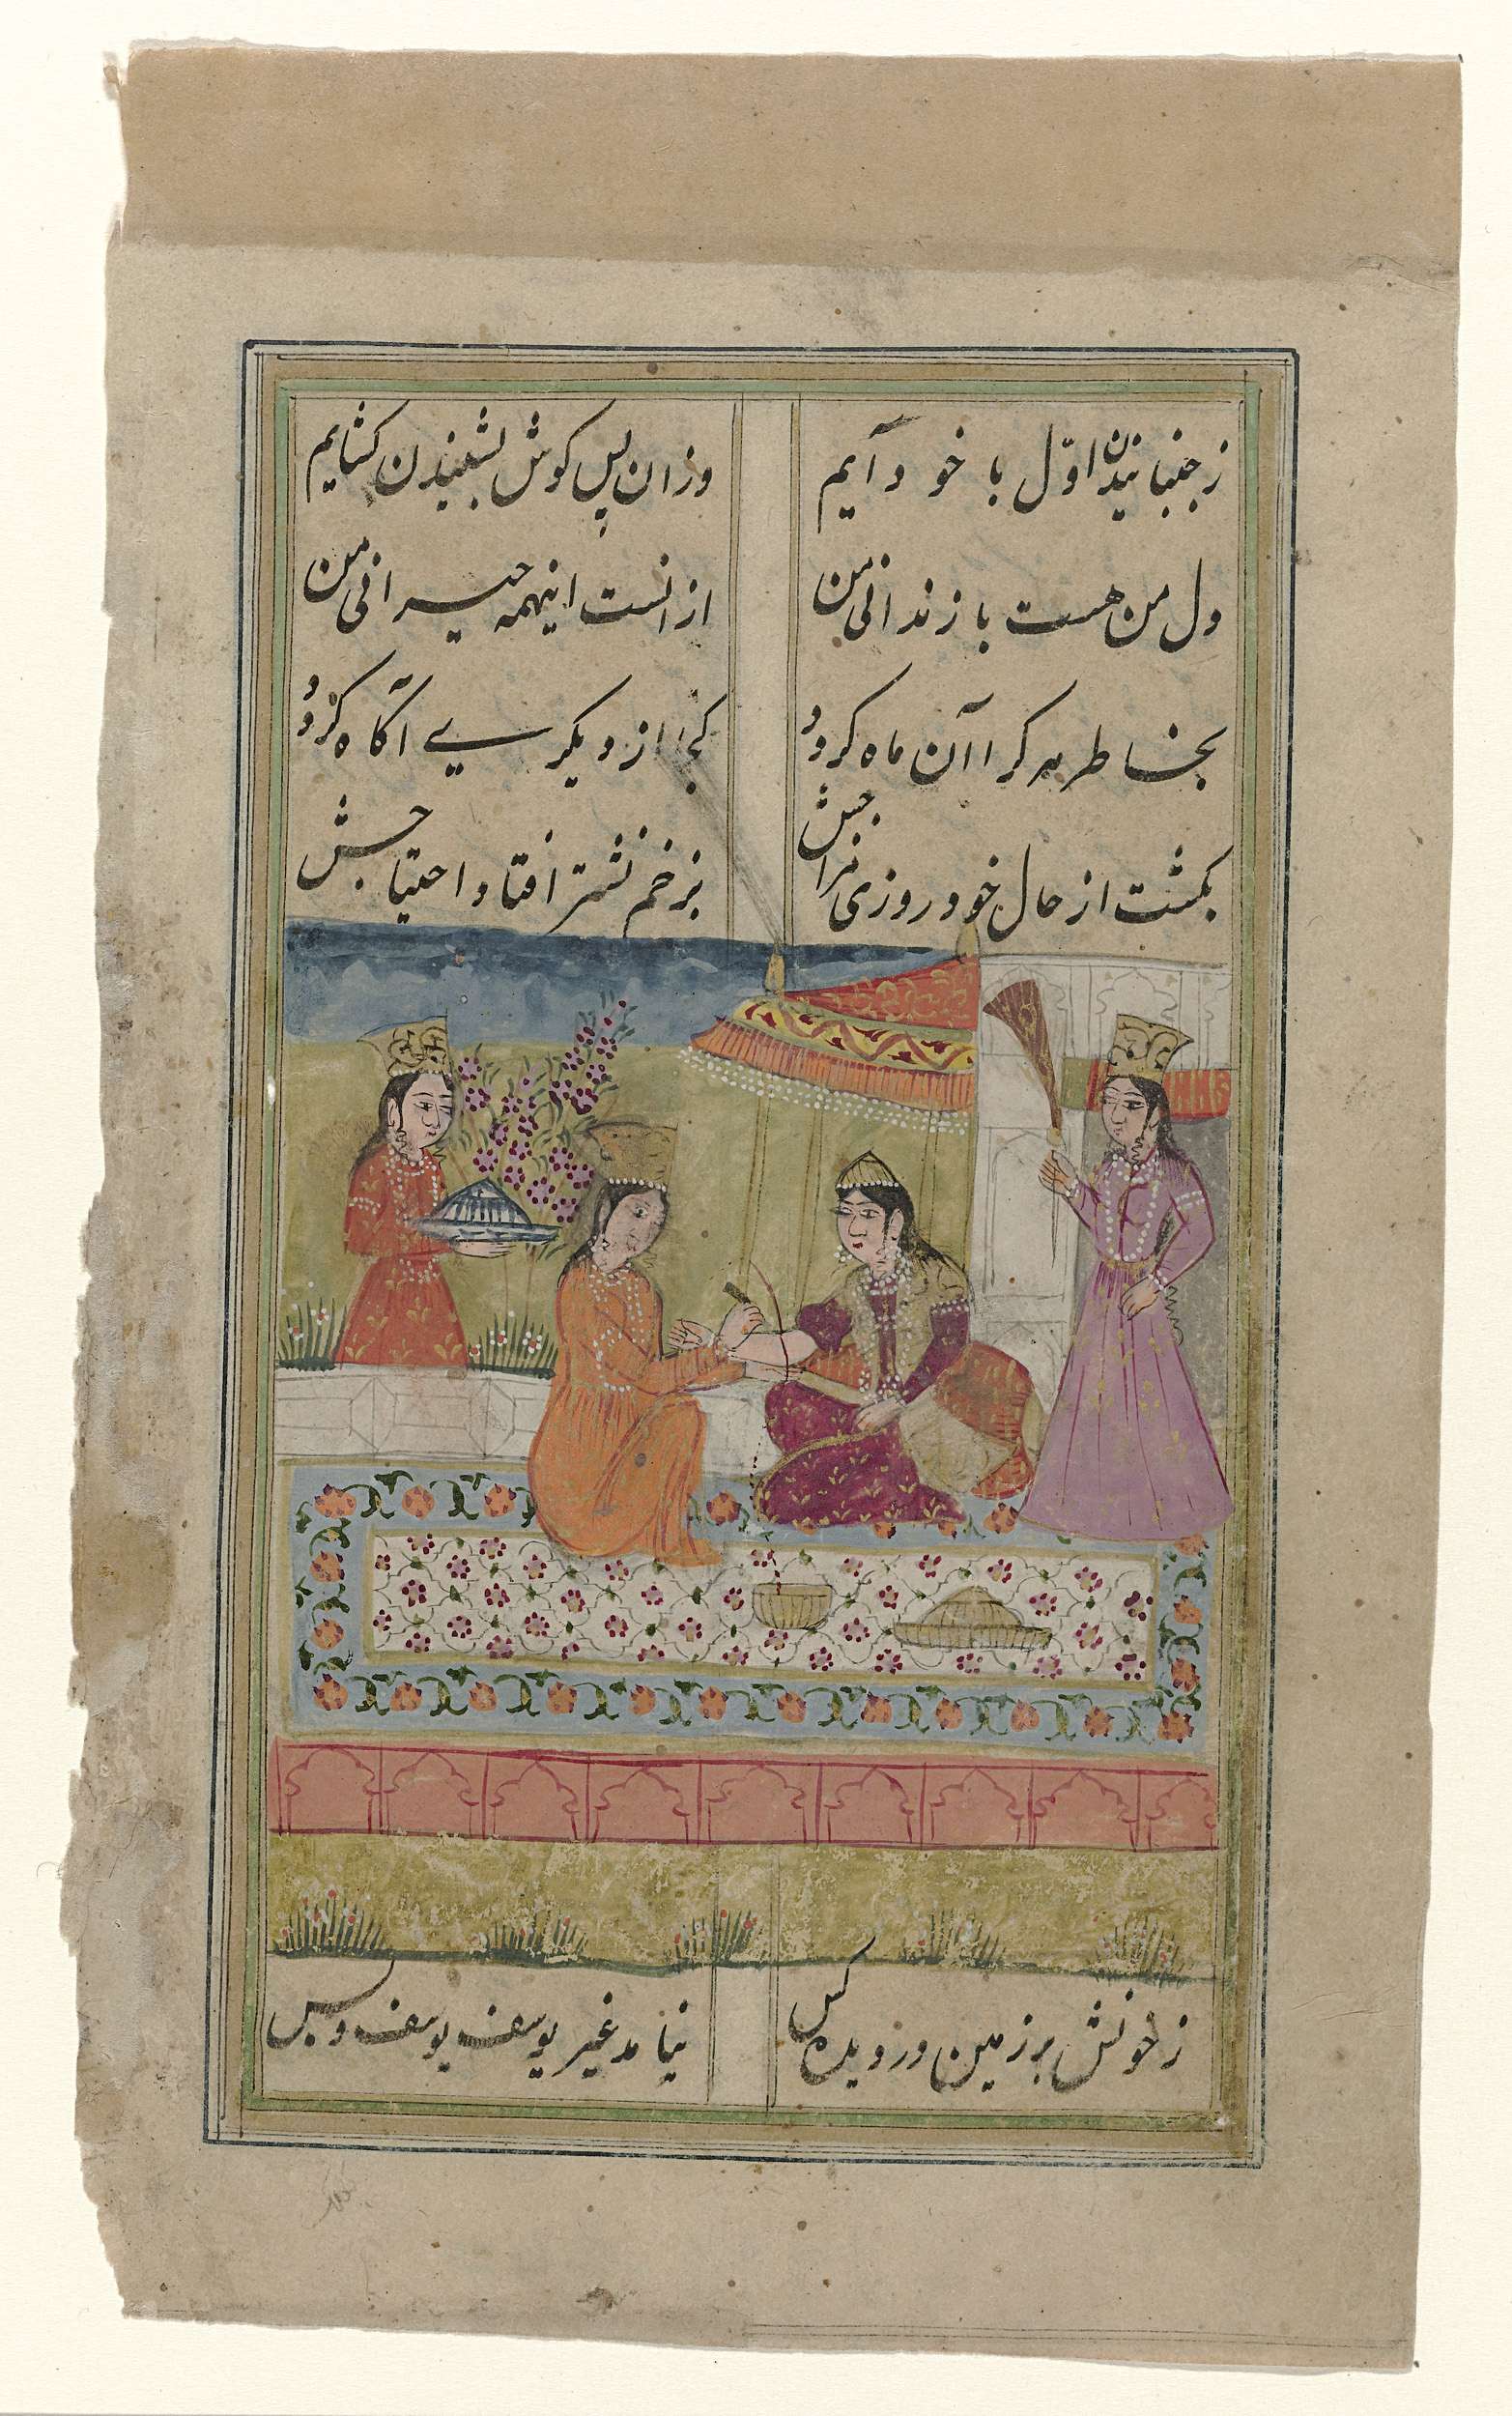 ز جنبانیدن اول با خود آیم
وزان پس کوش بشنیدن کشایم
دل من هست با زندانی من
ازانست اینهمه حیرانی من
بخاطر هر کرا آن ماه کردد
کجا از دیکری آکاه کردد
بکشت از حال خود روزی مزاجش
بزخم نشتر افتاد احتیاجش
ز خونش بر زمین در دیده کس
نیامد غیر یوسف یوسف و بس